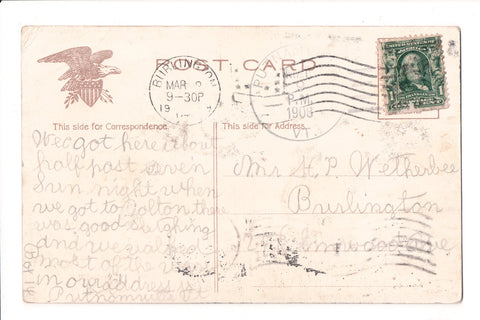 POST CARD
BURLINGTON
MAR 9
9-30P
19
P.M.
1908
VT.
This side for Correspondence.
This side for Address.
We got here about
half past seven
Sun night when
we got to Bolton there
was good sleighing
and we
most of the
my address is
Putnamville Vt
Box 14
Mr H. P. Wetherbee
Burlington
Elmwood ave